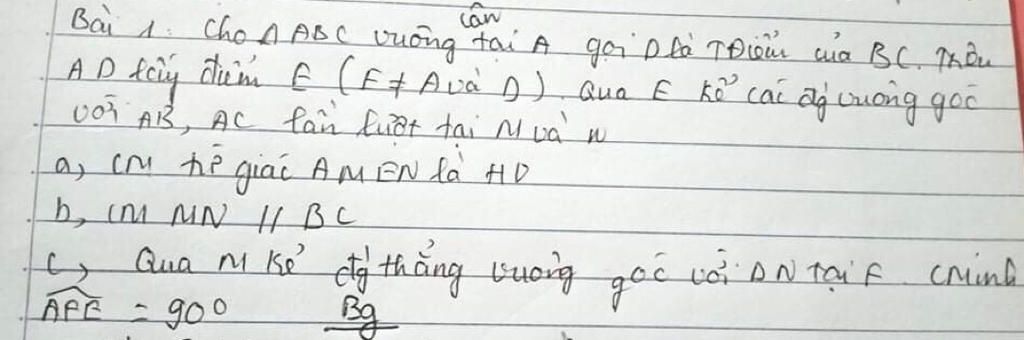 Bài 1: Cho Δ ABC vuông cân tại A gọi D là TĐiểm của BC. Trên
AD lấy điểm E (E ≠ A và D). Qua E kẻ các đg vuông góc
với AB, AC lần lượt tại M và N
a, CM tứ giác AMEN là HV
b, CM MN // BC
c, Qua M kẻ đg thẳng vuông góc với DN tại F. CMinh
AFE = 90°
Bg